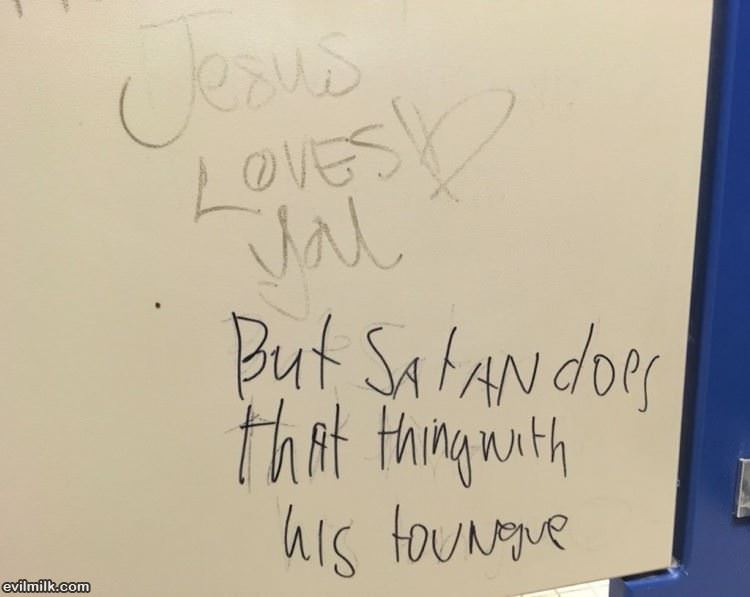 Jesus
LOVES
you
But SATAN does
that thing with
his toungue
evilmilk.com